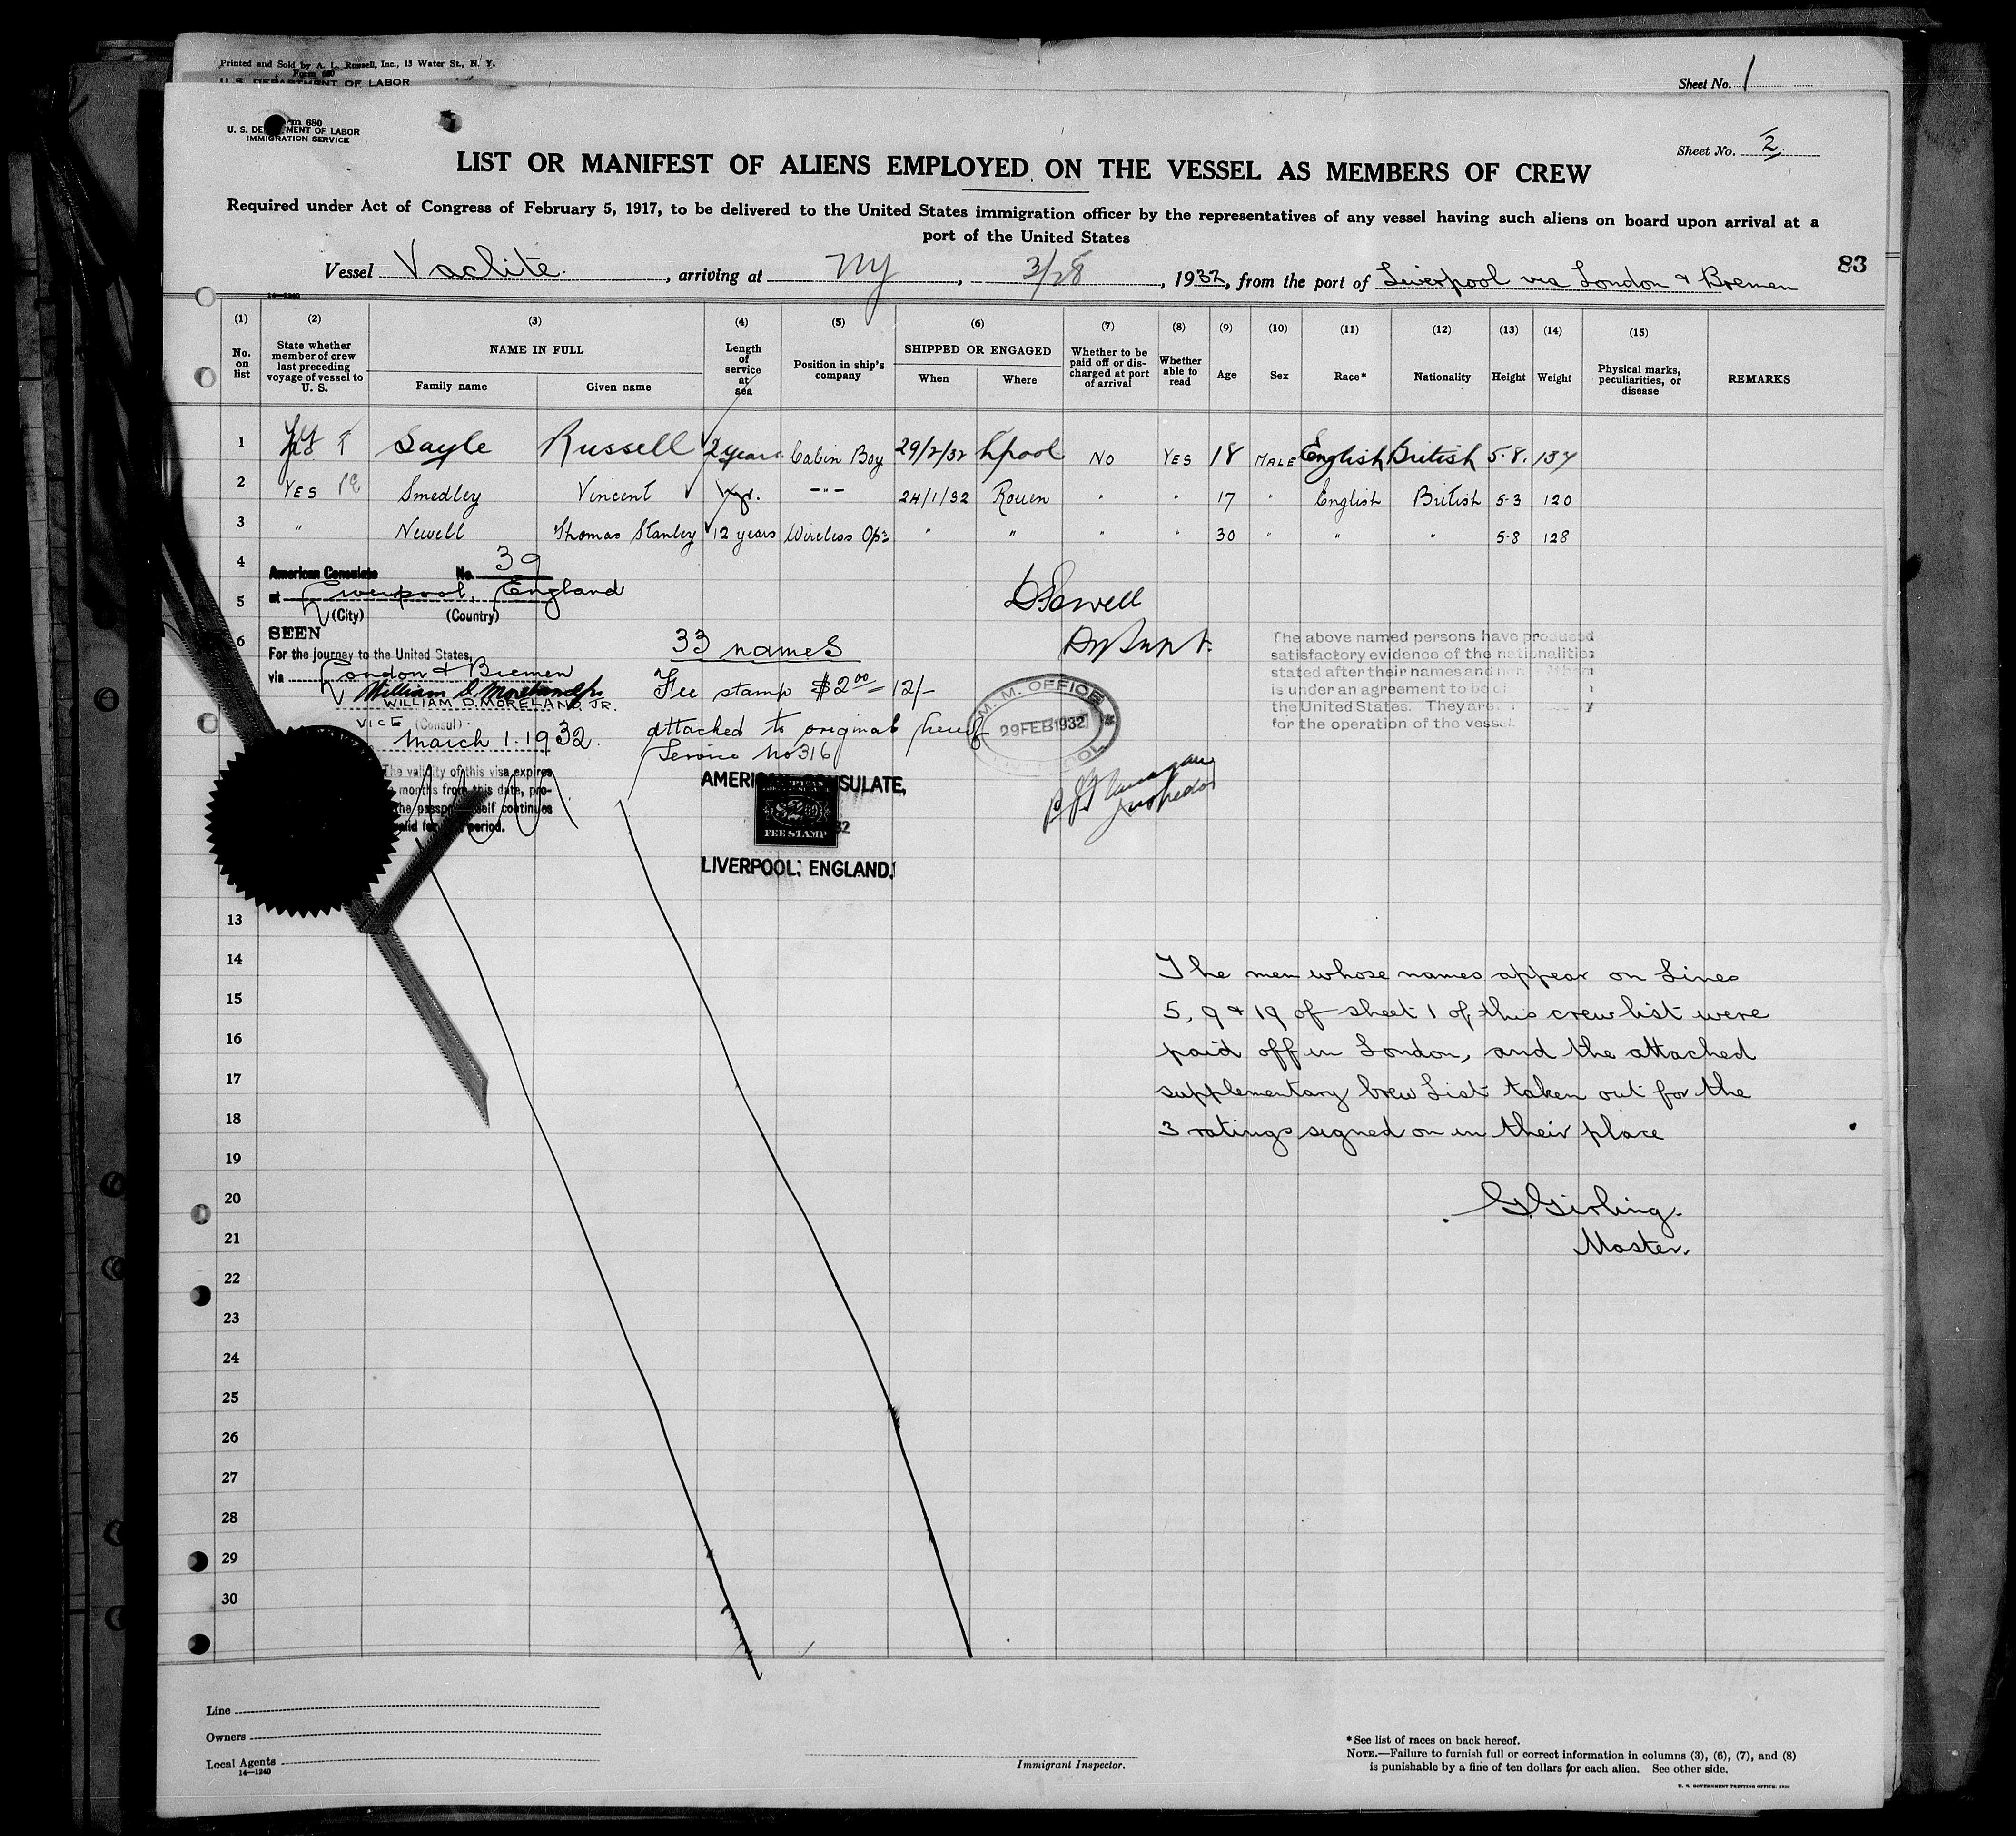 Printed and Sold by A. L. Russell, Inc., 13 Water St., N. Y.
Form 680
U. S. DEPARTMENT OF LABOR
Sheet No. 1
U. S. DEPARTMENT OF LABOR
IMMIGRATION SERVICE
Sheet No. 2
LIST OR MANIFEST OF ALIENS EMPLOYED ON THE VESSEL AS MEMBERS OF CREW
Required under Act of Congress of February 5, 1917, to be delivered to the United States immigration officer by the representatives of any vessel having such aliens on board upon arrival at a
port of the United States
83
Vessel Vaclite, arriving at NY, 3/28, 1932, from the port of Liverpool via London & Bremen
14—1240
(1) (2) (3) (4) (5) (6) (7) (8) (9) (10) (11) (12) (13) (14) (15)
No. on list
State whether member of crew last preceding voyage of vessel to U. S.
NAME IN FULL
Family name
Given name
Length of service at sea
Position in ship's company
SHIPPED OR ENGAGED
When
Where
Whether to be paid off or discharged at port of arrival
Whether able to read
Age
Sex
Race*
Nationality
Height
Weight
Physical marks, peculiarities, or disease
REMARKS
1 Sayle Russell 2 years Cabin Boy 29/2/32 L'pool NO YES 18 MALE English British 5-8. 137
2 YES Smedley Vincent -"- 24/1/32 Rouen " " 17 " English British 5-3 120
3 " Newell Thomas Stanley 12 years Wireless Opr " " " " 30 " " " 5-8 128
4
American Consulate No. 39
5
at Liverpool, England
(City) (Country)
6
SEEN
For the journey to the United States,
via London & Bremen
William D. Moreland Jr
WILLIAM D. MORELAND, JR.
VICE (Consul)
March 1. 1932.
The validity of this visa expires
months from this date, pro-
the passport itself continues
valid for period.
33 names
Fee stamp $2.00 = 12/-
attached to original hereof
Service No 316
AMERICAN CONSULATE,
$2
FEE STAMP
LIVERPOOL, ENGLAND.
M. M. OFFICE
29 FEB 1932
The above named persons have produced
satisfactory evidence of the nationalities
stated after their names and
is under an agreement to be
the United States. They are
for the operation of the vessel.
13
14
15
16
17
18
19
20
21
22
23
24
25
26
27
28
29
30
The men whose names appear on Lines
5, 9 & 19 of sheet 1 of this crew list were
paid off in London, and the attached
supplementary Crew List taken out for the
3 ratings signed on in their place
G. Girling.
Master.
Line
Owners
Local Agents
14—1240
Immigrant Inspector.
*See list of races on back hereof.
NOTE.—Failure to furnish full or correct information in columns (3), (6), (7), and (8)
is punishable by a fine of ten dollars for each alien. See other side.
U. S. GOVERNMENT PRINTING OFFICE: 1930